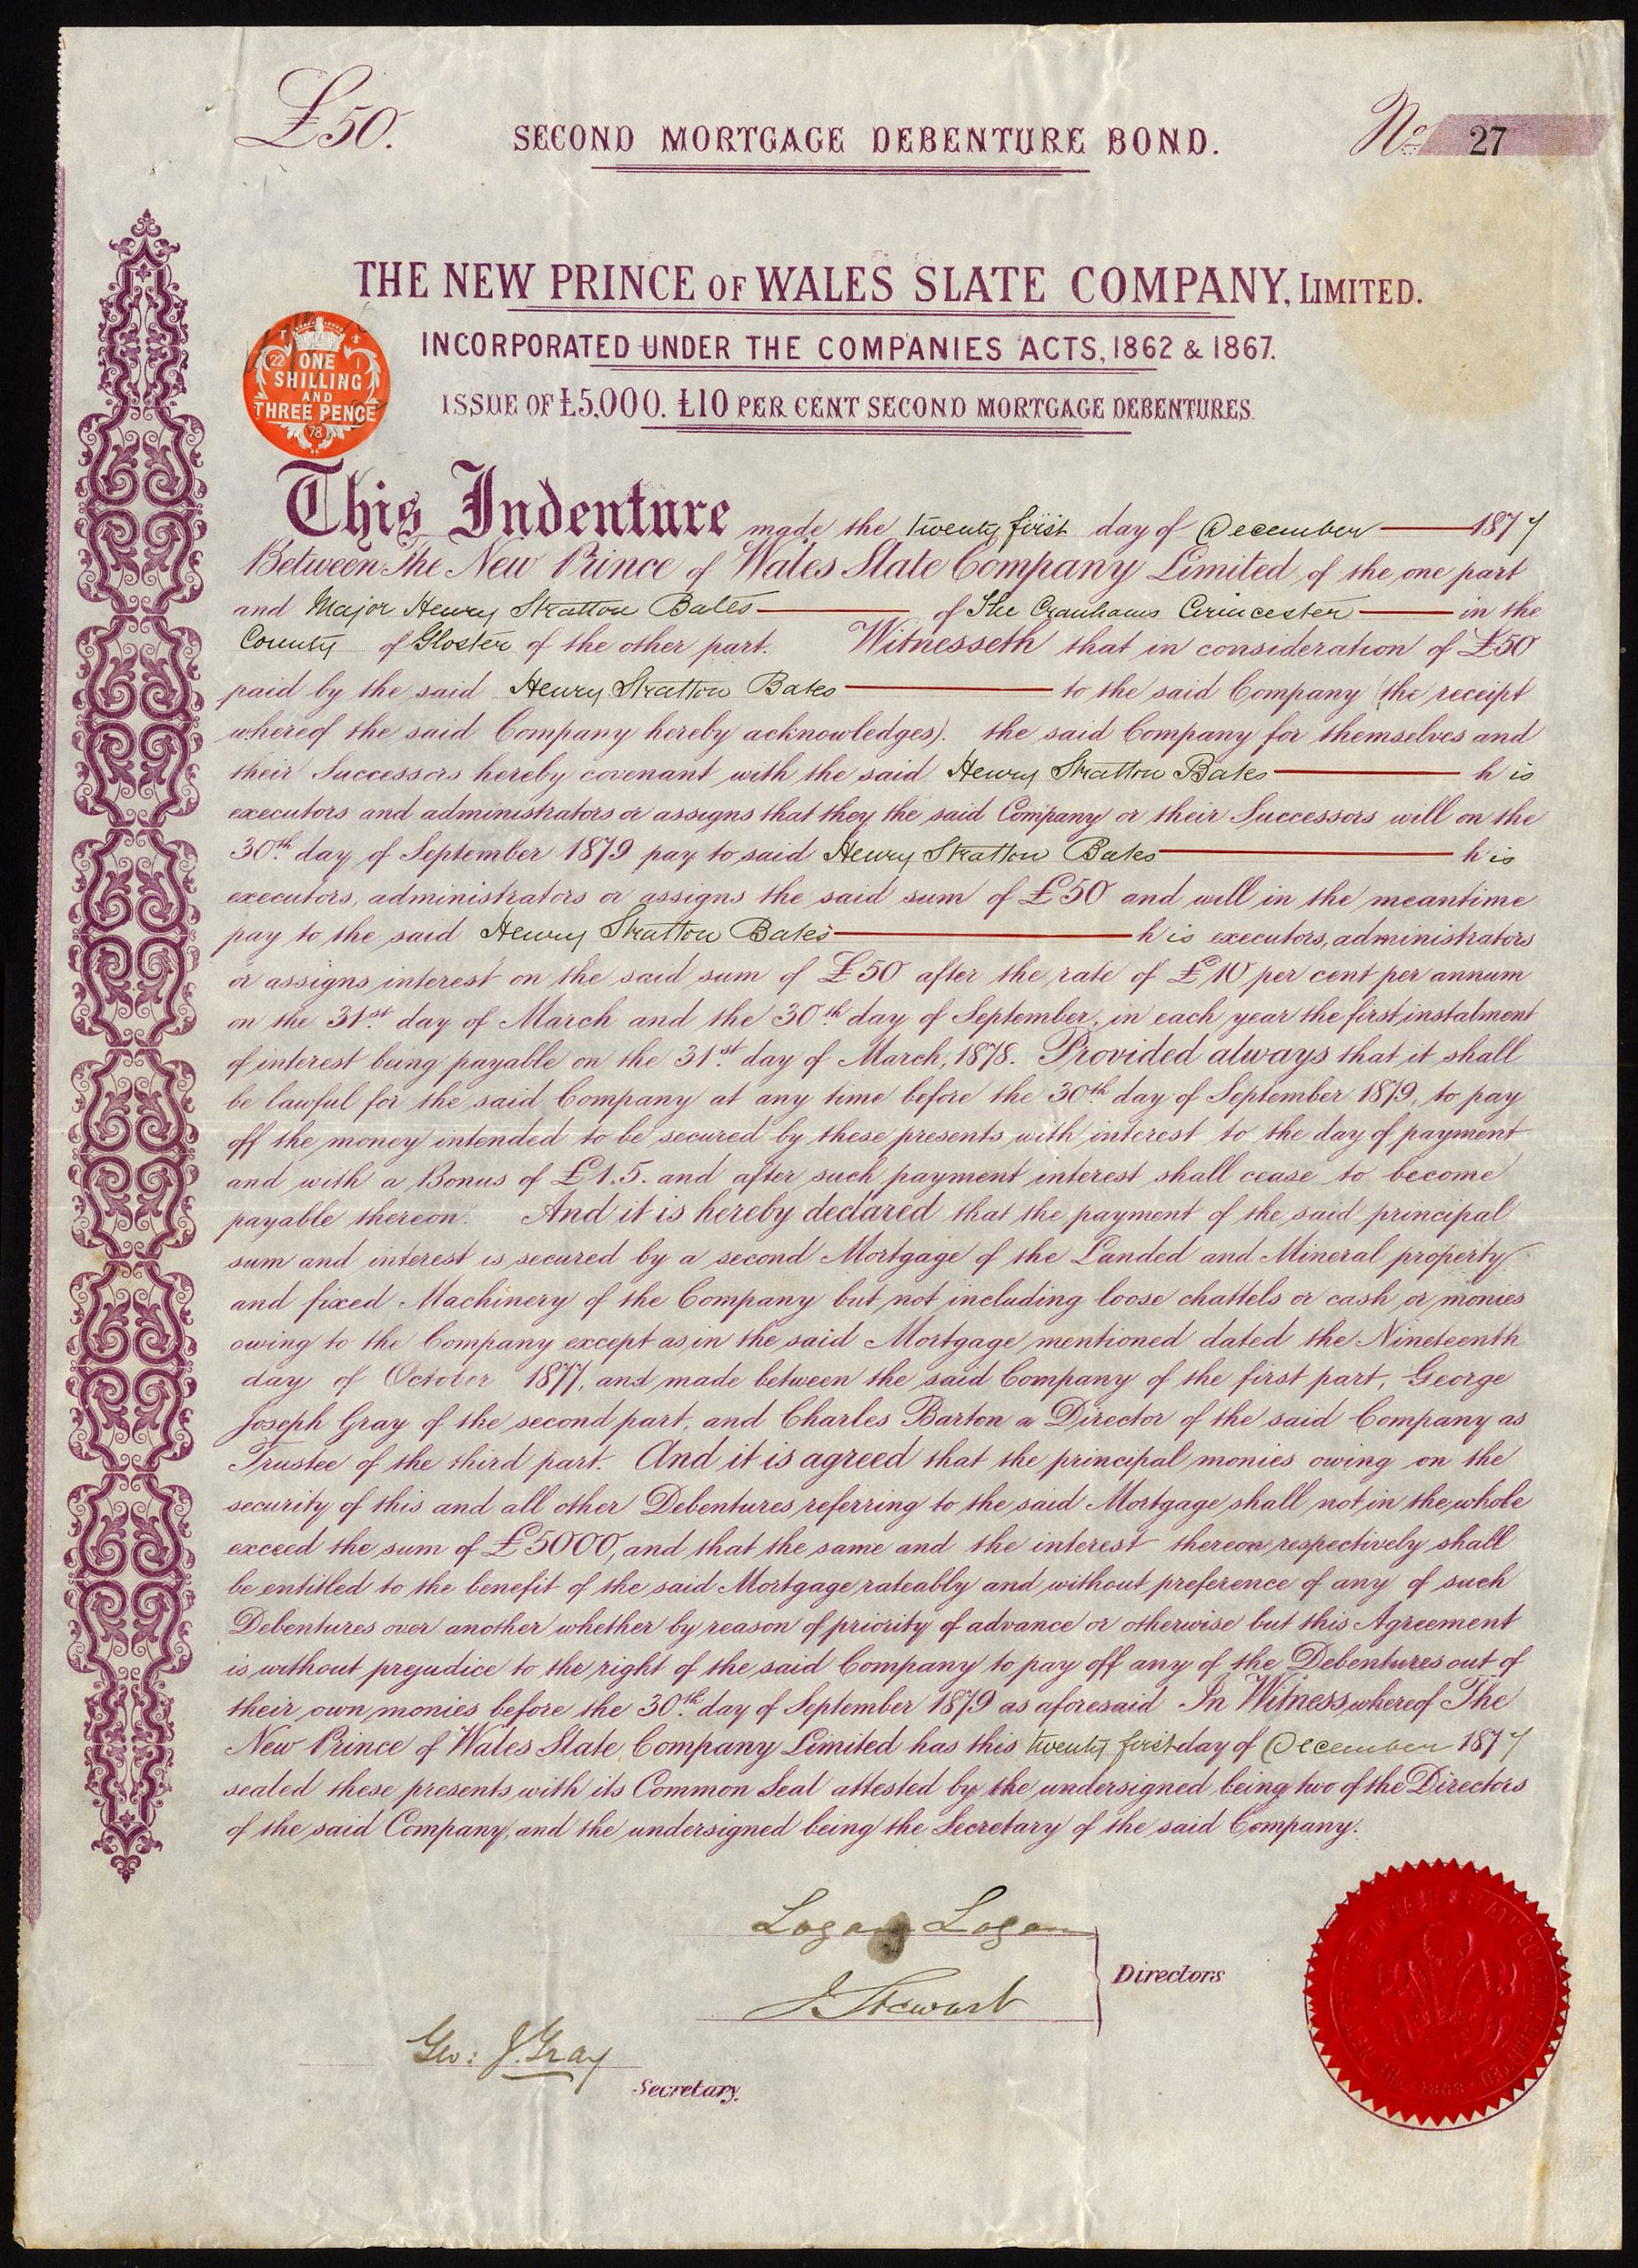 £50.
SECOND MORTGAGE DEBENTURE BOND.
No 27
THE NEW PRINCE OF WALES SLATE COMPANY, LIMITED.
INCORPORATED UNDER THE COMPANIES ACTS, 1862 & 1867.
ISSUE OF £5,000. £10 PER CENT SECOND MORTGAGE DEBENTURES.
22 1
ONE
SHILLING
AND
THREE PENCE
78
This Indenture made the twenty first day of December 1877
Between The New Prince of Wales Slate Company Limited of the one part
and Major Henry Stratton Bates of The Cranhams Cirincester in the
County of Gloster of the other part. Witnesseth that in consideration of £50
paid by the said Henry Stratton Bates to the said Company (the receipt
whereof the said Company hereby acknowledges). the said Company for themselves and
their Successors hereby covenant with the said Henry Stratton Bates his
executors and administrators or assigns that they the said Company or their Successors will on the
30th day of September 1879 pay to said Henry Stratton Bates his
executors, administrators or assigns the said sum of £50 and will in the meantime
pay to the said Henry Stratton Bates his executors, administrators
or assigns interest on the said sum of £50 after the rate of £10 per cent per annum
on the 31st day of March and the 30th day of September, in each year the first instalment
of interest being payable on the 31st day of March, 1878. Provided always that it shall
be lawful for the said Company at any time before the 30th day of September 1879, to pay
off the money intended to be secured by these presents with interest to the day of payment
and with a Bonus of £1.5. and after such payment interest shall cease to become
payable thereon. And it is hereby declared that the payment of the said principal
sum and interest is secured by a second Mortgage of the Landed and Mineral property
and fixed Machinery of the Company but not including loose chattels or cash or monies
owing to the Company except as in the said Mortgage mentioned dated the Nineteenth
day of October 1877, and made between the said Company of the first part, George
Joseph Gray of the second part, and Charles Barton a Director of the said Company as
Trustee of the third part. And it is agreed that the principal monies owing on the
security of this and all other Debentures referring to the said Mortgage shall not in the whole
exceed the sum of £5000, and that the same and the interest thereon respectively shall
be entitled to the benefit of the said Mortgage rateably and without preference of any of such
Debentures over another whether by reason of priority of advance or otherwise but this Agreement
is without prejudice to the right of the said Company to pay off any of the Debentures out of
their own monies before the 30th day of September 1879 as aforesaid In Witness whereof The
New Prince of Wales Slate Company Limited has this twenty first day of December 1877
sealed these presents with its Common Seal attested by the undersigned being two of the Directors
of the said Company, and the undersigned being the Secretary of the said Company.
Logan Logan
J. Stewart
Directors
Geo: J. Gray
Secretary.